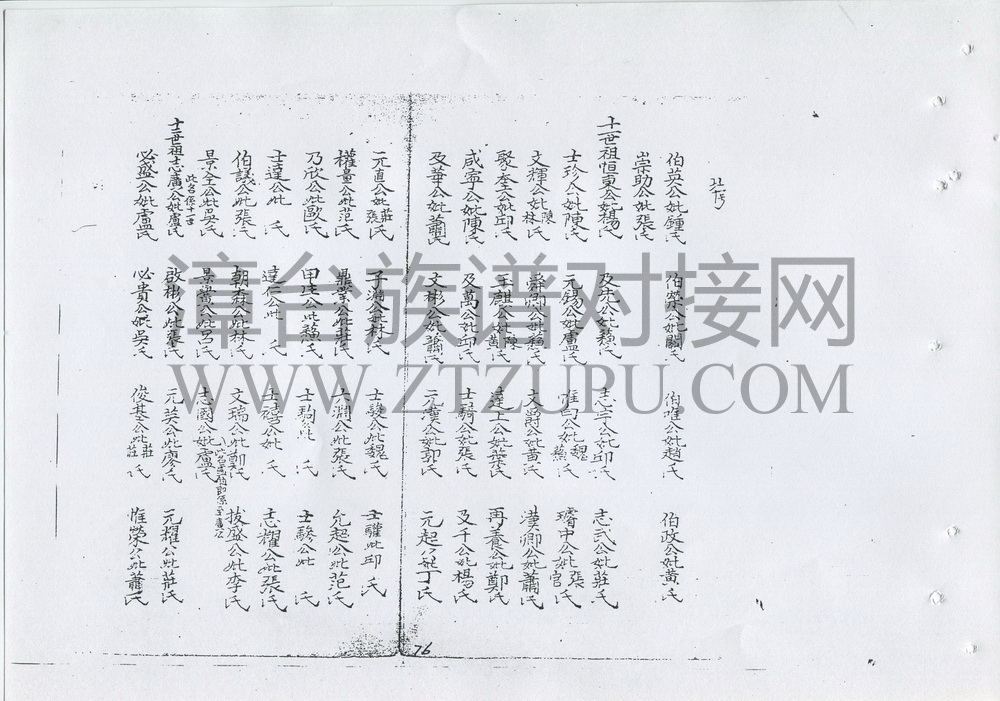 伯英公妣鍾氏 伯榮公妣關氏 伯唯公妣趙氏 伯政公妣黃氏
崇助公妣張氏
十一世祖恒東公妣楊氏 及先公妣蔡氏 志宇公妣邱氏 志式公妣莊氏
士珍公妣陳氏 元錫公妣盧氏 惟白公妣魏蔡氏 璿中公妣張官氏
文輝公妣陳林氏 舜卿公妣蔡氏 文爵公妣黃氏 漢卿公妣蕭氏
聚奎公妣邱氏 玉麒公妣陳黃氏 達上公妣莊張氏 再養公妣鄭氏
咸寧公妣陳氏 及萬公妣邱氏 士騎公妣張氏 及千公妣楊氏
及華公妣蕭氏 文彬公妣蕭氏 元漢公妣郭氏 元起公妣丁氏
76
元直公妣莊張氏 子海公妣林氏 士駿公妣魏氏 士驊妣邱氏
權臺公妣范氏 鼎業公妣莊氏 六淵公妣張氏 允起公妣范氏
乃欣公妣歐氏 甲生公妣蔡氏 士駒公妣 氏 士驂公妣 氏
士達公妣 氏 達仁公妣 氏 士禧公妣 氏 志耀公妣張氏
伯議公妣張氏 朝森公妣林氏 文瑞公妣鄭氏 拔盛公妣李氏
景全公妣吳氏 景貴公妣馬氏 志國公妣盧氏
十二世祖志廣公妣盧氏 此名係十一世 啟彬公妣張氏 元英公妣廖氏 元耀公妣莊氏
必盛公妣盧氏 必貴公妣吳氏 俊基公妣莊莊氏 惟榮公妣蕭氏
漳台族谱对接网
WWW.ZTZUPU.COM